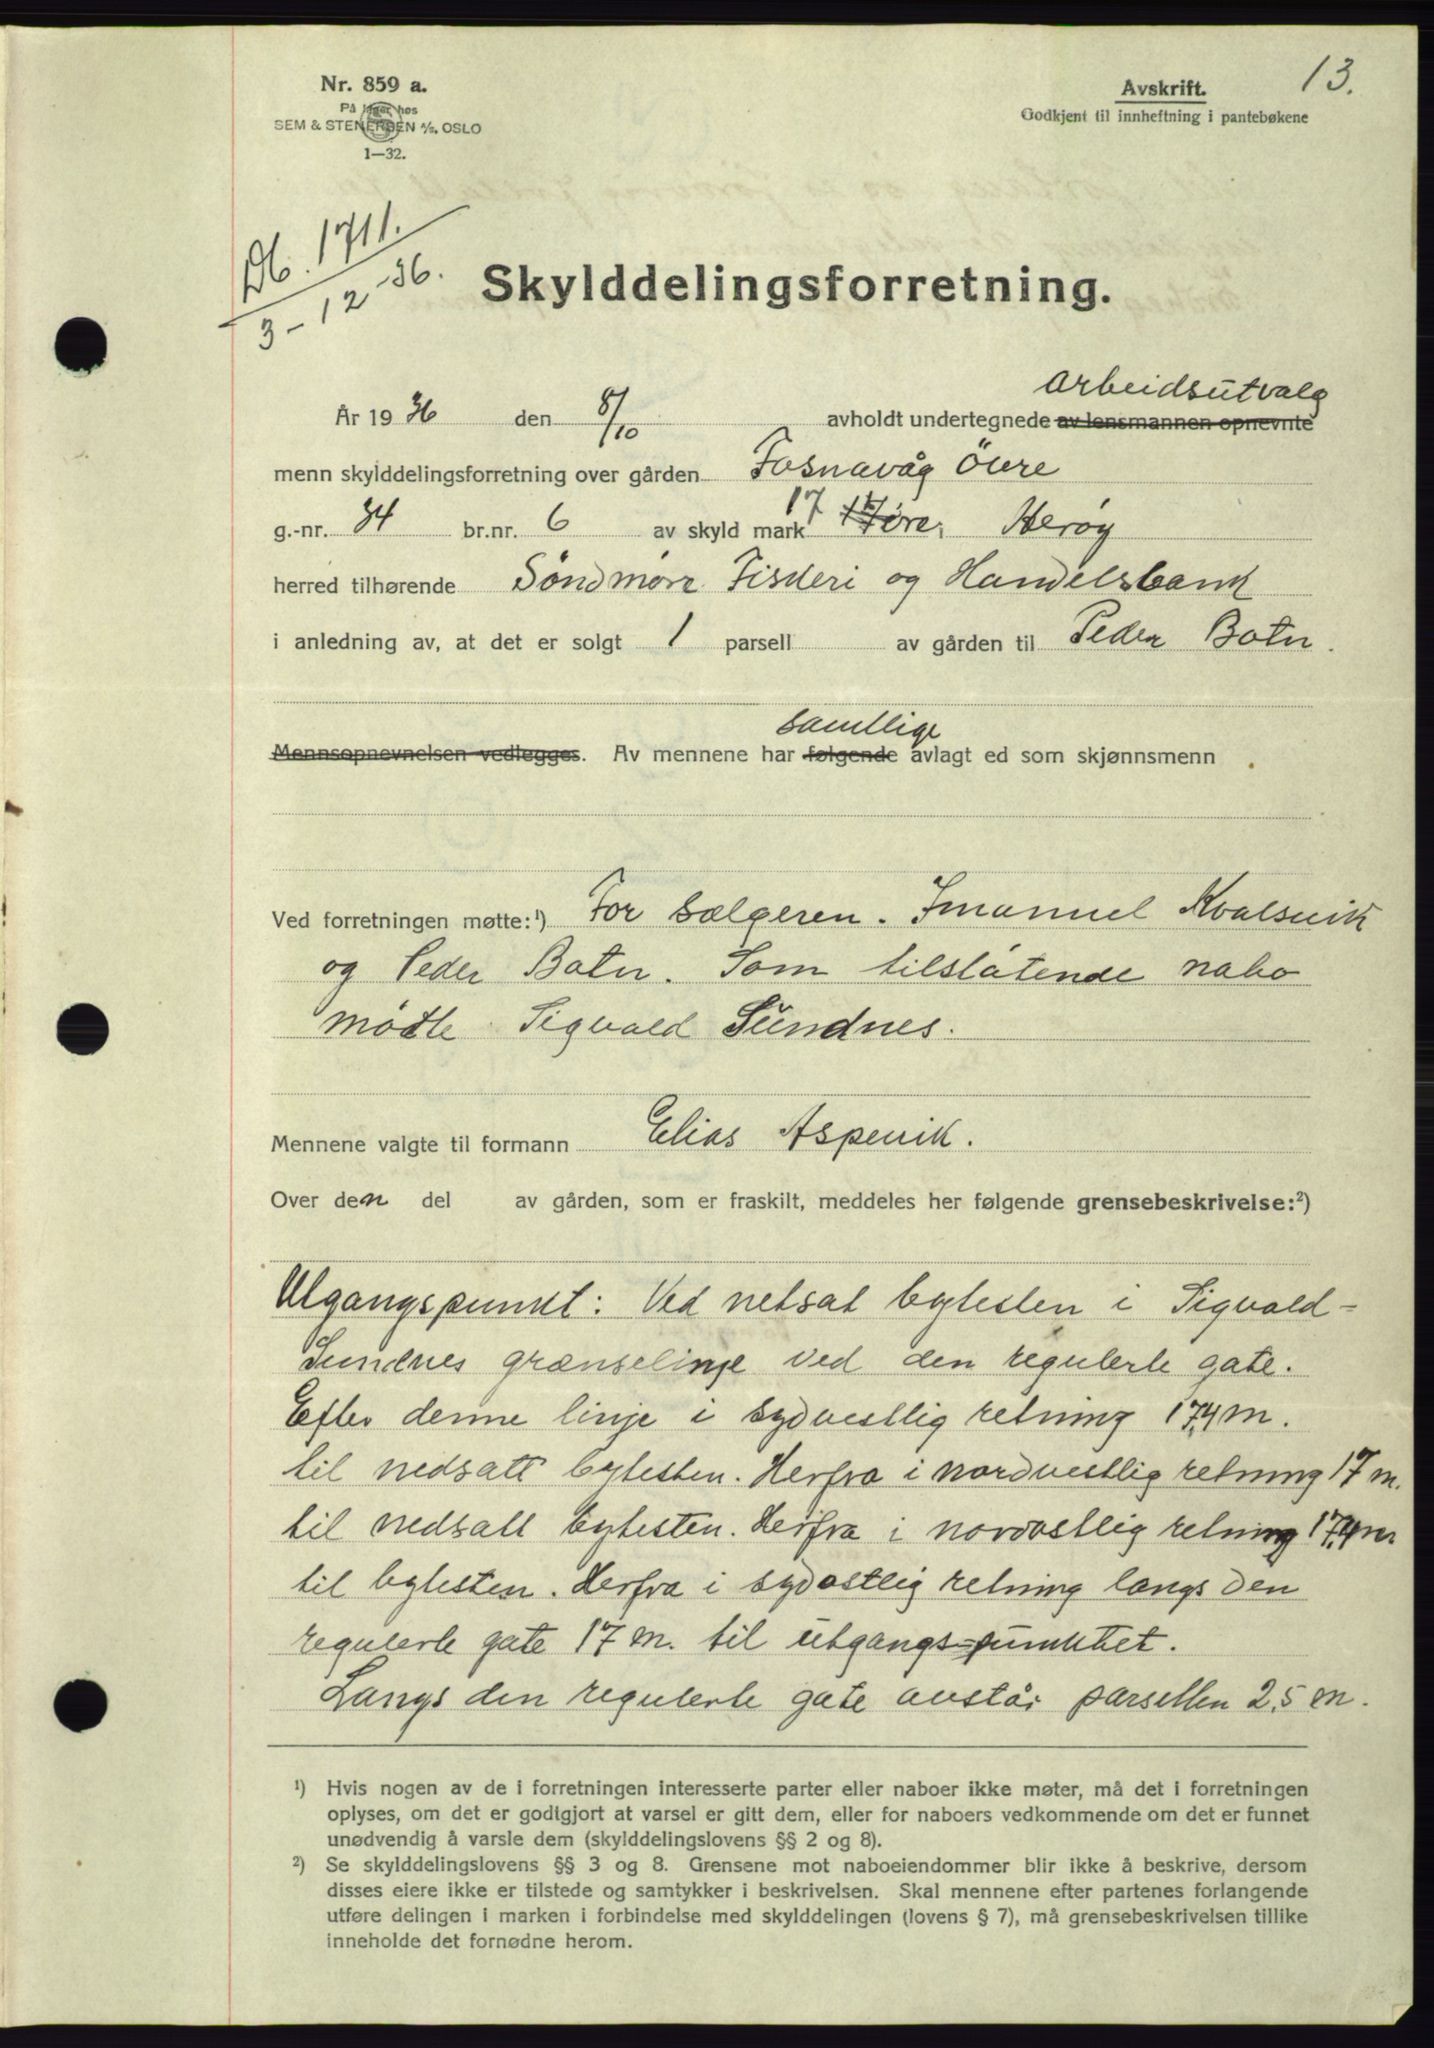 13.
Nr. 859 a.
På lager hos
SEM & STENERSEN A/S, OSLO
1—32.
Avskrift.
Godkjent til innheftning i pantebøkene
Db. 1711.
3-12-36.
Skylddelingsforretning.
arbeidsutvalg
År 1936 den 8/10 avholdt undertegnede av lensmannen opnevnte
menn skylddelingsforretning over gården Fosnavåg Övre
g.-nr. 34 br.nr. 6 av skyld mark 17 17 öre, Herøy
herred tilhørende Söndmöre Fiskeri og Handelsbank
i anledning av, at det er solgt 1 parsell av gården til Peder Botn.
samtlige
Mennsopnevnelsen vedlegges. Av mennene har følgende avlagt ed som skjønnsmenn
Ved forretningen møtte:¹) For sælgeren. Imanuel Kvalsvik
og Peder Botn. Som tilstötende nabo
mödte Sigvald Sundnes.
Mennene valgte til formann Elias Aspevik.
Over den del av gården, som er fraskilt, meddeles her følgende grensebeskrivelse:²)
Utgangspunkt: Ved netsat bytesten i Sigvald-
Sundnes grænselinje ved den regulerte gate.
Efter denne linje i sydvestlig retning 17,4 m.
til nedsatt bytesten. Herfra i nordvestlig retning 17 m.
til nedsatt bytesten. Herfra i nordostlig retning 17,4 m.
til bytesten. Herfra i sydostlig retning langs den
regulerte gate 17 m. til utgangs-punktet.
Langs den regulerte gate avstår parsellen 2,5 m.
¹) Hvis nogen av de i forretningen interesserte parter eller naboer ikke møter, må det i forretningen
oplyses, om det er godtgjort at varsel er gitt dem, eller for naboers vedkommende om det er funnet
unødvendig å varsle dem (skylddelingslovens §§ 2 og 8).
²) Se skylddelingslovens §§ 3 og 8. Grensene mot naboeiendommer blir ikke å beskrive, dersom
disses eiere ikke er tilstede og samtykker i beskrivelsen. Skal mennene efter partenes forlangende
utføre delingen i marken i forbindelse med skylddelingen (lovens § 7), må grensebeskrivelsen tillike
inneholde det fornødne herom.